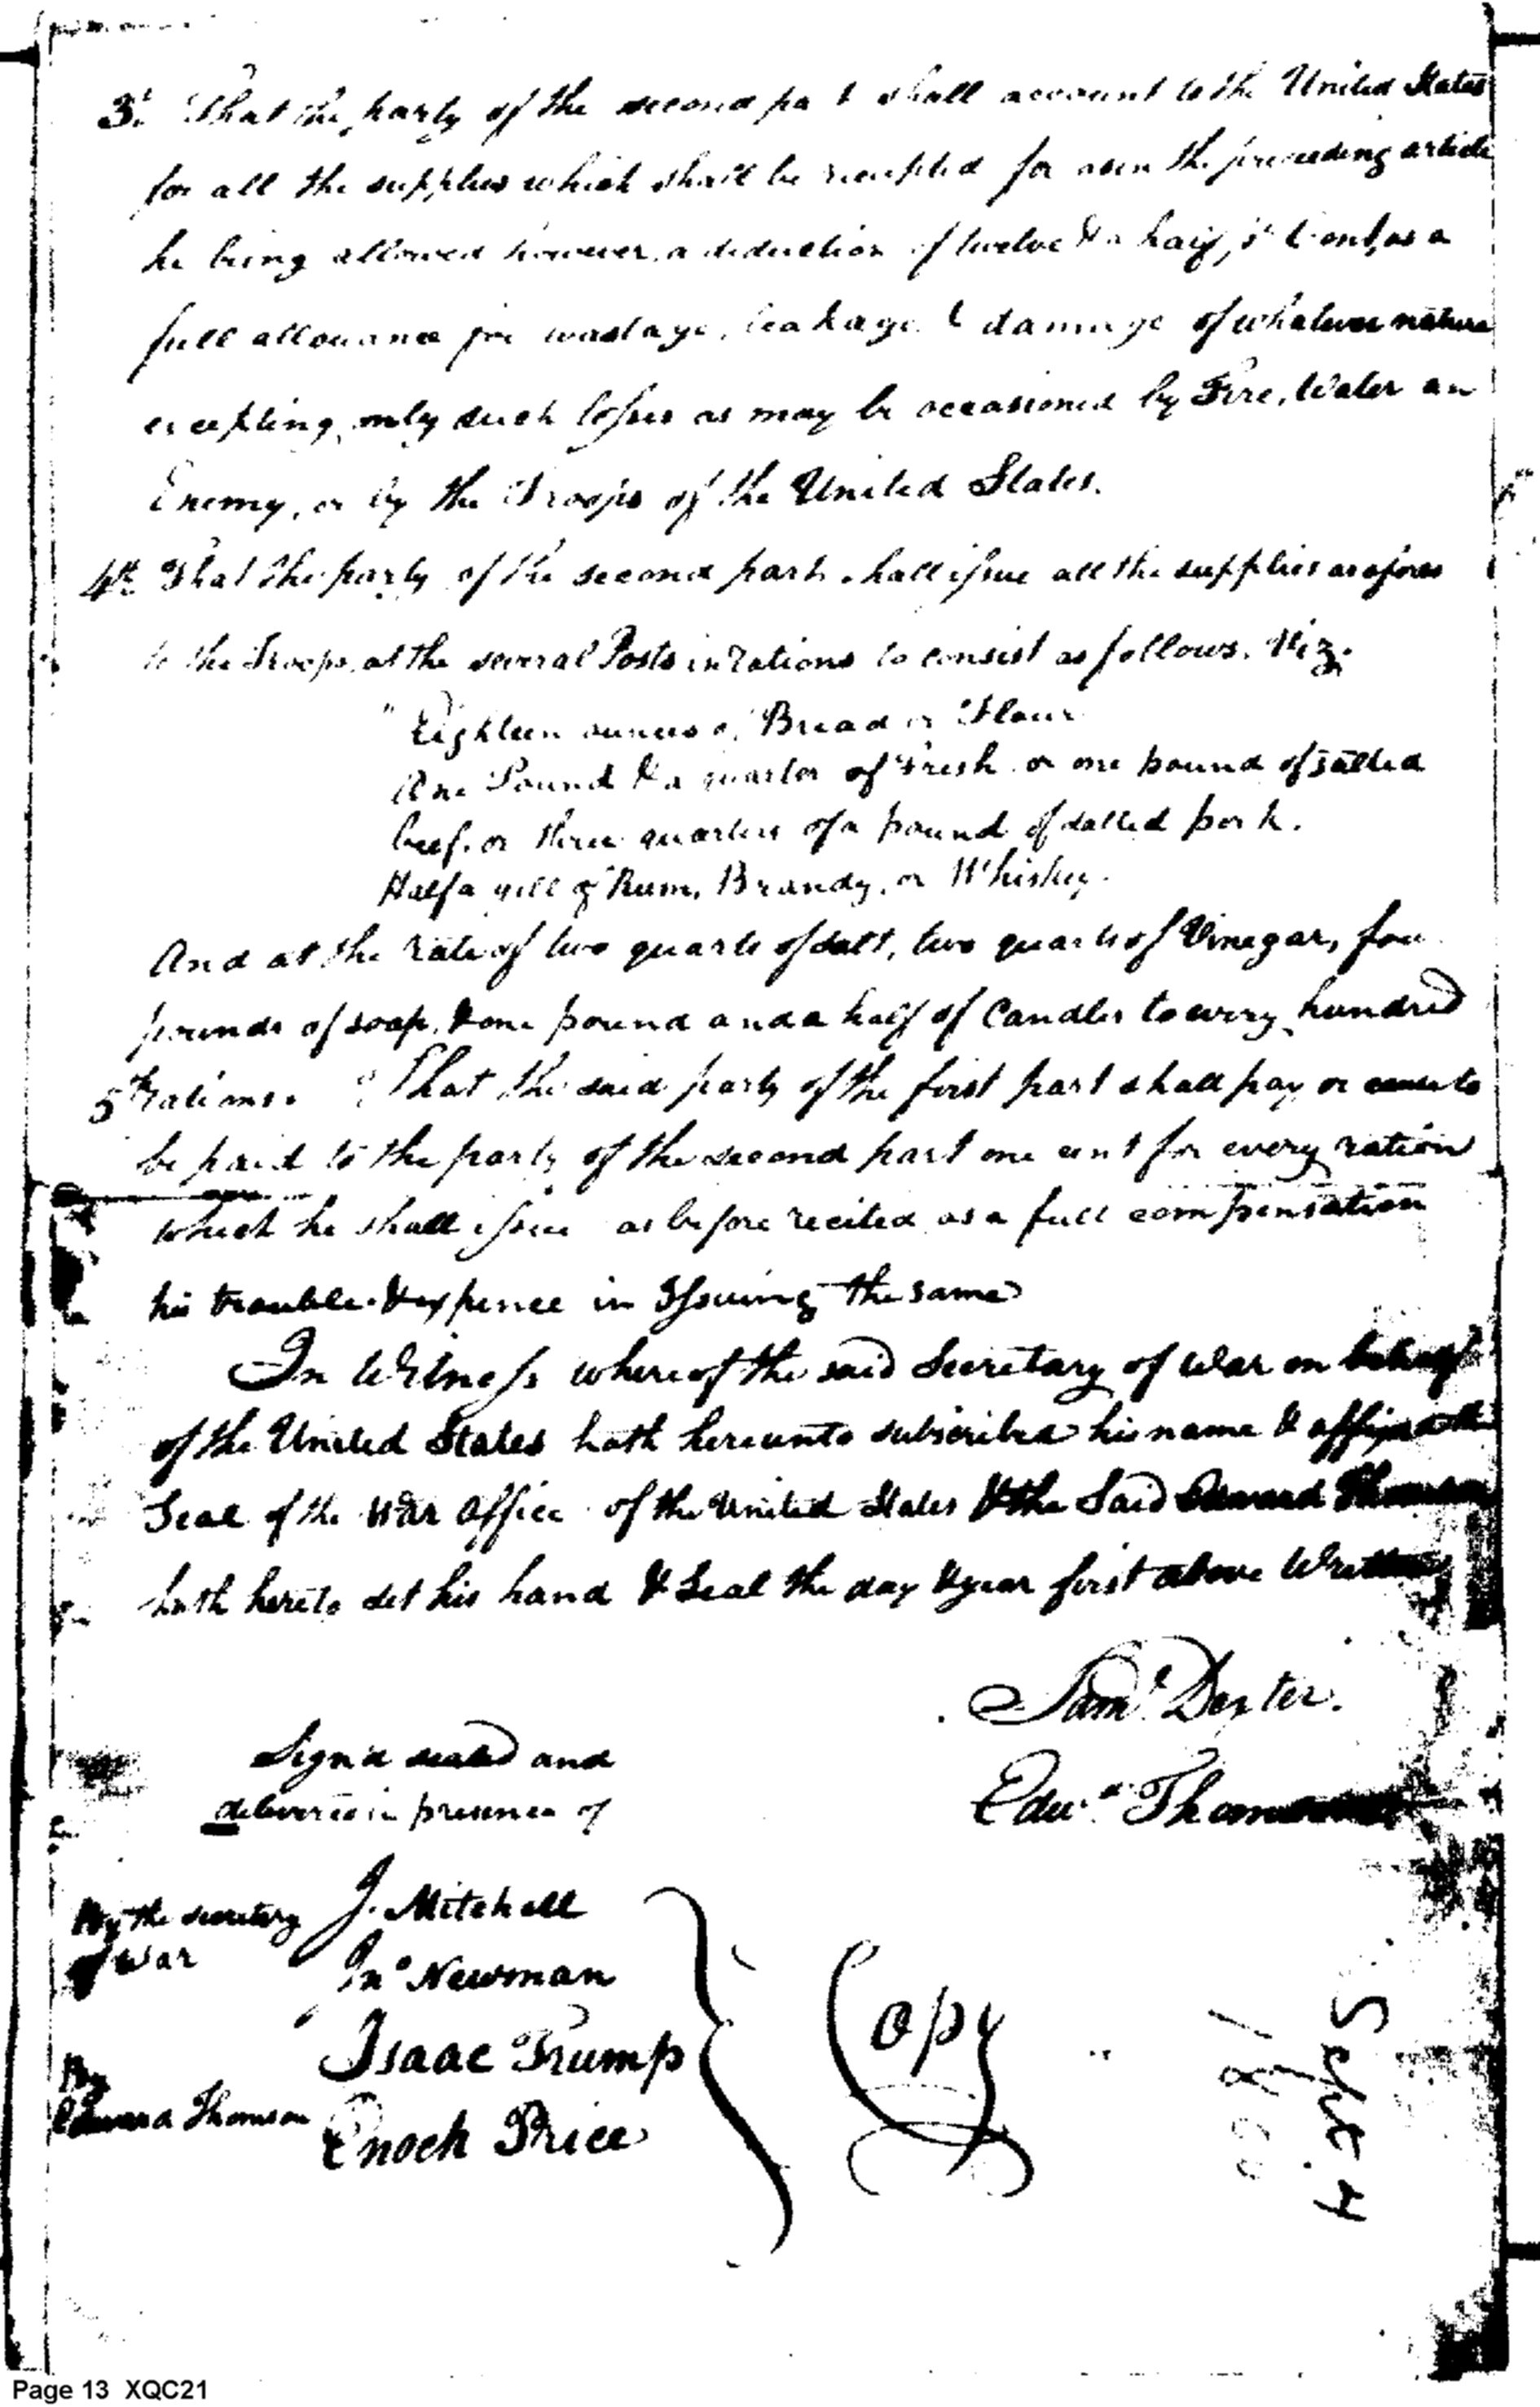 3d. That the party of the second pa t shall account to the United States
for all the supplies which shall be receipted for as in the preceding article
he being allowed however, a deduction of twelve & a half, Cent, as a
full allowance for wastage, leakage & damage of whatever nature
excepting only such losses as may be occasioned by Fire, Water an
Enemy, or by the Troops of the United States.
4th. That the party of the second part shall issue all the supplies as afores
to the Troops, at the several Posts in rations to consist as follows. Viz.
" Eighteen ounces of Bread or Flour
One Pound & a quarter of Fresh or one pound of salted
beef, or three quarters of a pound of salted pork.
Half a gill of Rum, Brandy, or Whiskey.
And at the rate of two quarts of salt, two quarts of Vinegar, four
pounds of soap, & one pound and a half of Candles to every hundred
5th rations. That the said party of the first part shall pay or cause to
be paid to the party of the second part one cent for every ration
which he shall issue as before recited as a full compensation
his trouble & expence in Issuing the same
In Witness whereof the said Secretary of War on behalf
of the United States hath hereunto subscribed his name & affixed the
Seal of the War Office of the United States & the Said Edward Thomson
hath hereto set his hand & Seal the day & year first above Written
Saml. Dexter.
Sign'd sealed and
Edwd. Thomson
delivered in presence of
By the secretary J. Mitchell
of War
Jno Newman
Isaac Trump
Copy
By
Edward Thomson Enoch Price
Sept. 4
1800
Page 13 XQC21